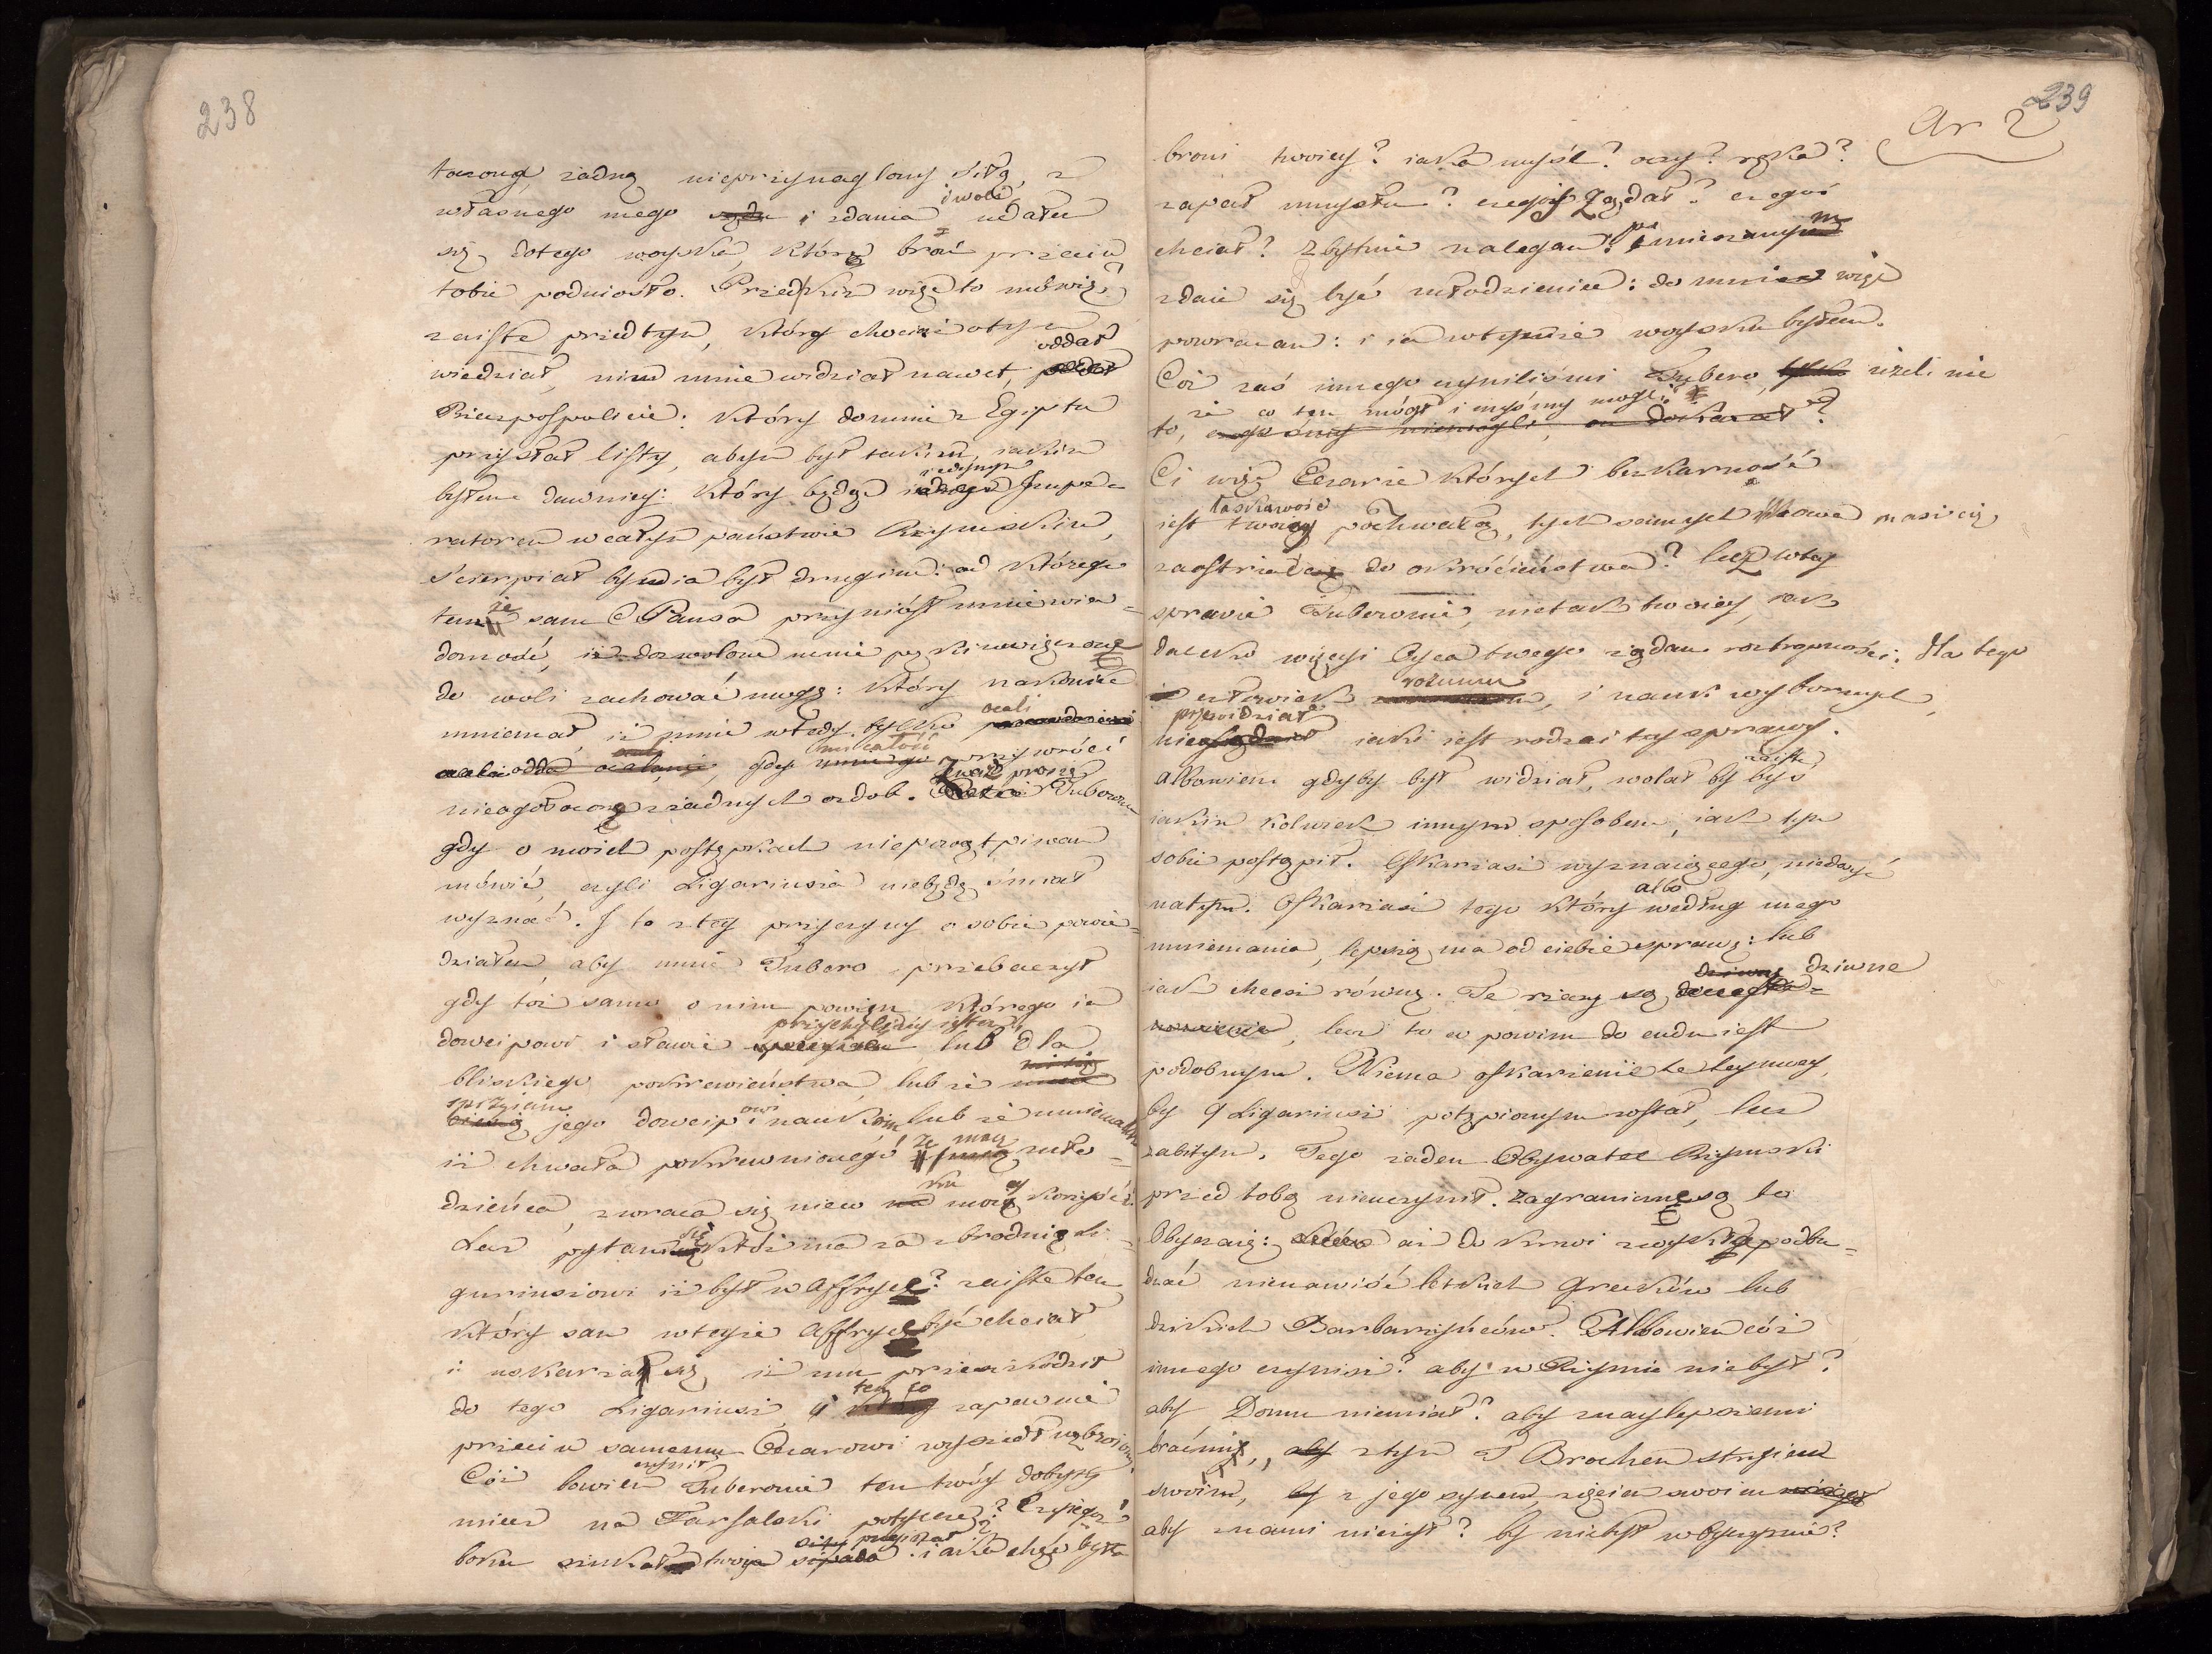 238
toczoną żadną nieprzynaglony siłą, z
własnego mego sądu i zdania i woli udałem
się do tego woyska, które broń przeciw
tobie podniosło. Przedkim więc to mówię?
zaiste przed tym, który chociaż o tym
wiedział, nim mnie widział nawet, oddał
Rzeczpospolicie: który do mnie z Egiptu
przysłał listy, abym był takim, jakim
byłem dawniey: który będąc iedynym Impe-
ratorem w całym państwie Rzymskim,
ścierpiał bym ia był drugim: od którego
tenże sam C Pansa przyniósł mnie wia-
domość, iż dozwolone mnie pęki uwięzione
do woli zachować mogę: który nakoniec
mniemał, iż mnie wtedy tylko ocali
gdy mu całość przywróci
nieogołoconą z żadnych ozdob. Zważ proszę Tuberon
gdy o moich postępkach niepowątpiwam
mówić, czyli Ligariusza niebędę śmiał
wyznać. I to z tey przyczyny o sobie powie-
działem, aby mnie Tubero przebaczył
gdy toż samo o nim powiem którego ia
dowcipowi i sławie przychylnieyszy iestem, lub dla
bliskiego pokrewieństwa, lub że
sprzyiam jego dowcipowi i naukom lub że mniemałem
iż chwała pokrewnionego że mną mło-
dzieńca, zwraca się niew ku moiey korzyści.
Lecz pytam się któż ma za zbrodnię Li-
gariusiowi iż był w Affryce? zaiste ten
który sam w teyże Affryce być chciał
i uskarżał się, iż mu przeszkodził
do tego Ligariusz, i ten co zapewne
przeciw samemu Cezarowi wyszedł uzbroiony,
Cóż bowiem czynił Tuberonie ten twóy dobyty
miecz na Farsalski potyczce? Czyiegoż
boku szukał twóy przeszył? iaka chęć była
239
Ar 2
broni twoiey? iaka myśl? oczy? ręka?
zapał umysłu? czegoś żądał? czegoś
chciał? Zbytnie nalegam: pomieszanym
zdaie się być młodzieniec: do mnie więc
powracam: i ia w tymże woysku byłem.
Cóż zaś innego czyniliśmy Tubero, ieżeli nie
to, że co ten mógł i myśmy mogli?
Ci więc Cezarze których bezkarność
iest łaskawości twoiey pochwałą, tych samych Mowa masz cię
zaostrzać do okrócieństwa? lecz w tey
sprawie Tuberonie, nietak twoiey, iak
daleko więcey Oyca twego żądam roztropności. Dla tego
człowiek rozumu, i nauk wybornych,
nieprzewidział iaki iest rodzai tey sprawy.
Albowiem gdyby był widział, wolał by zaiste byś
iakim kolwiek innym sposobem, iak tym
sobie postąpił. Oskarżasz wyznaiącego, niedosyć
natym. Oskarżasz tego który albo według mego
mniemania, lepszą ma od ciebie sprawę: lub
iak chcesz równą. Te rzeczy są dziwne
lecz to co powiem do cudu iest
podobnym. Niema oskarżenie te tey mocy,
by Q Ligariusz potępionym został, lecz
zabitym. Tego żaden Obywatel Rzymski
przed tobą nieuczynił. Zagraniczne są to
Obyczaie: aż do krwi zwykłe podbu-
dzać nienawiść letkich Greków lub
dzikich Barbarzyńców. Albowiem cóż
innego czynisz? aby w Rzymie niebył?
aby Domu niemiał? aby znaylepszemi
braćmi, z tym T Brochem stryiem
swoim, z jego synem, zięciem swoim
aby z nami nieżył? by niebył w Oyczyznie?